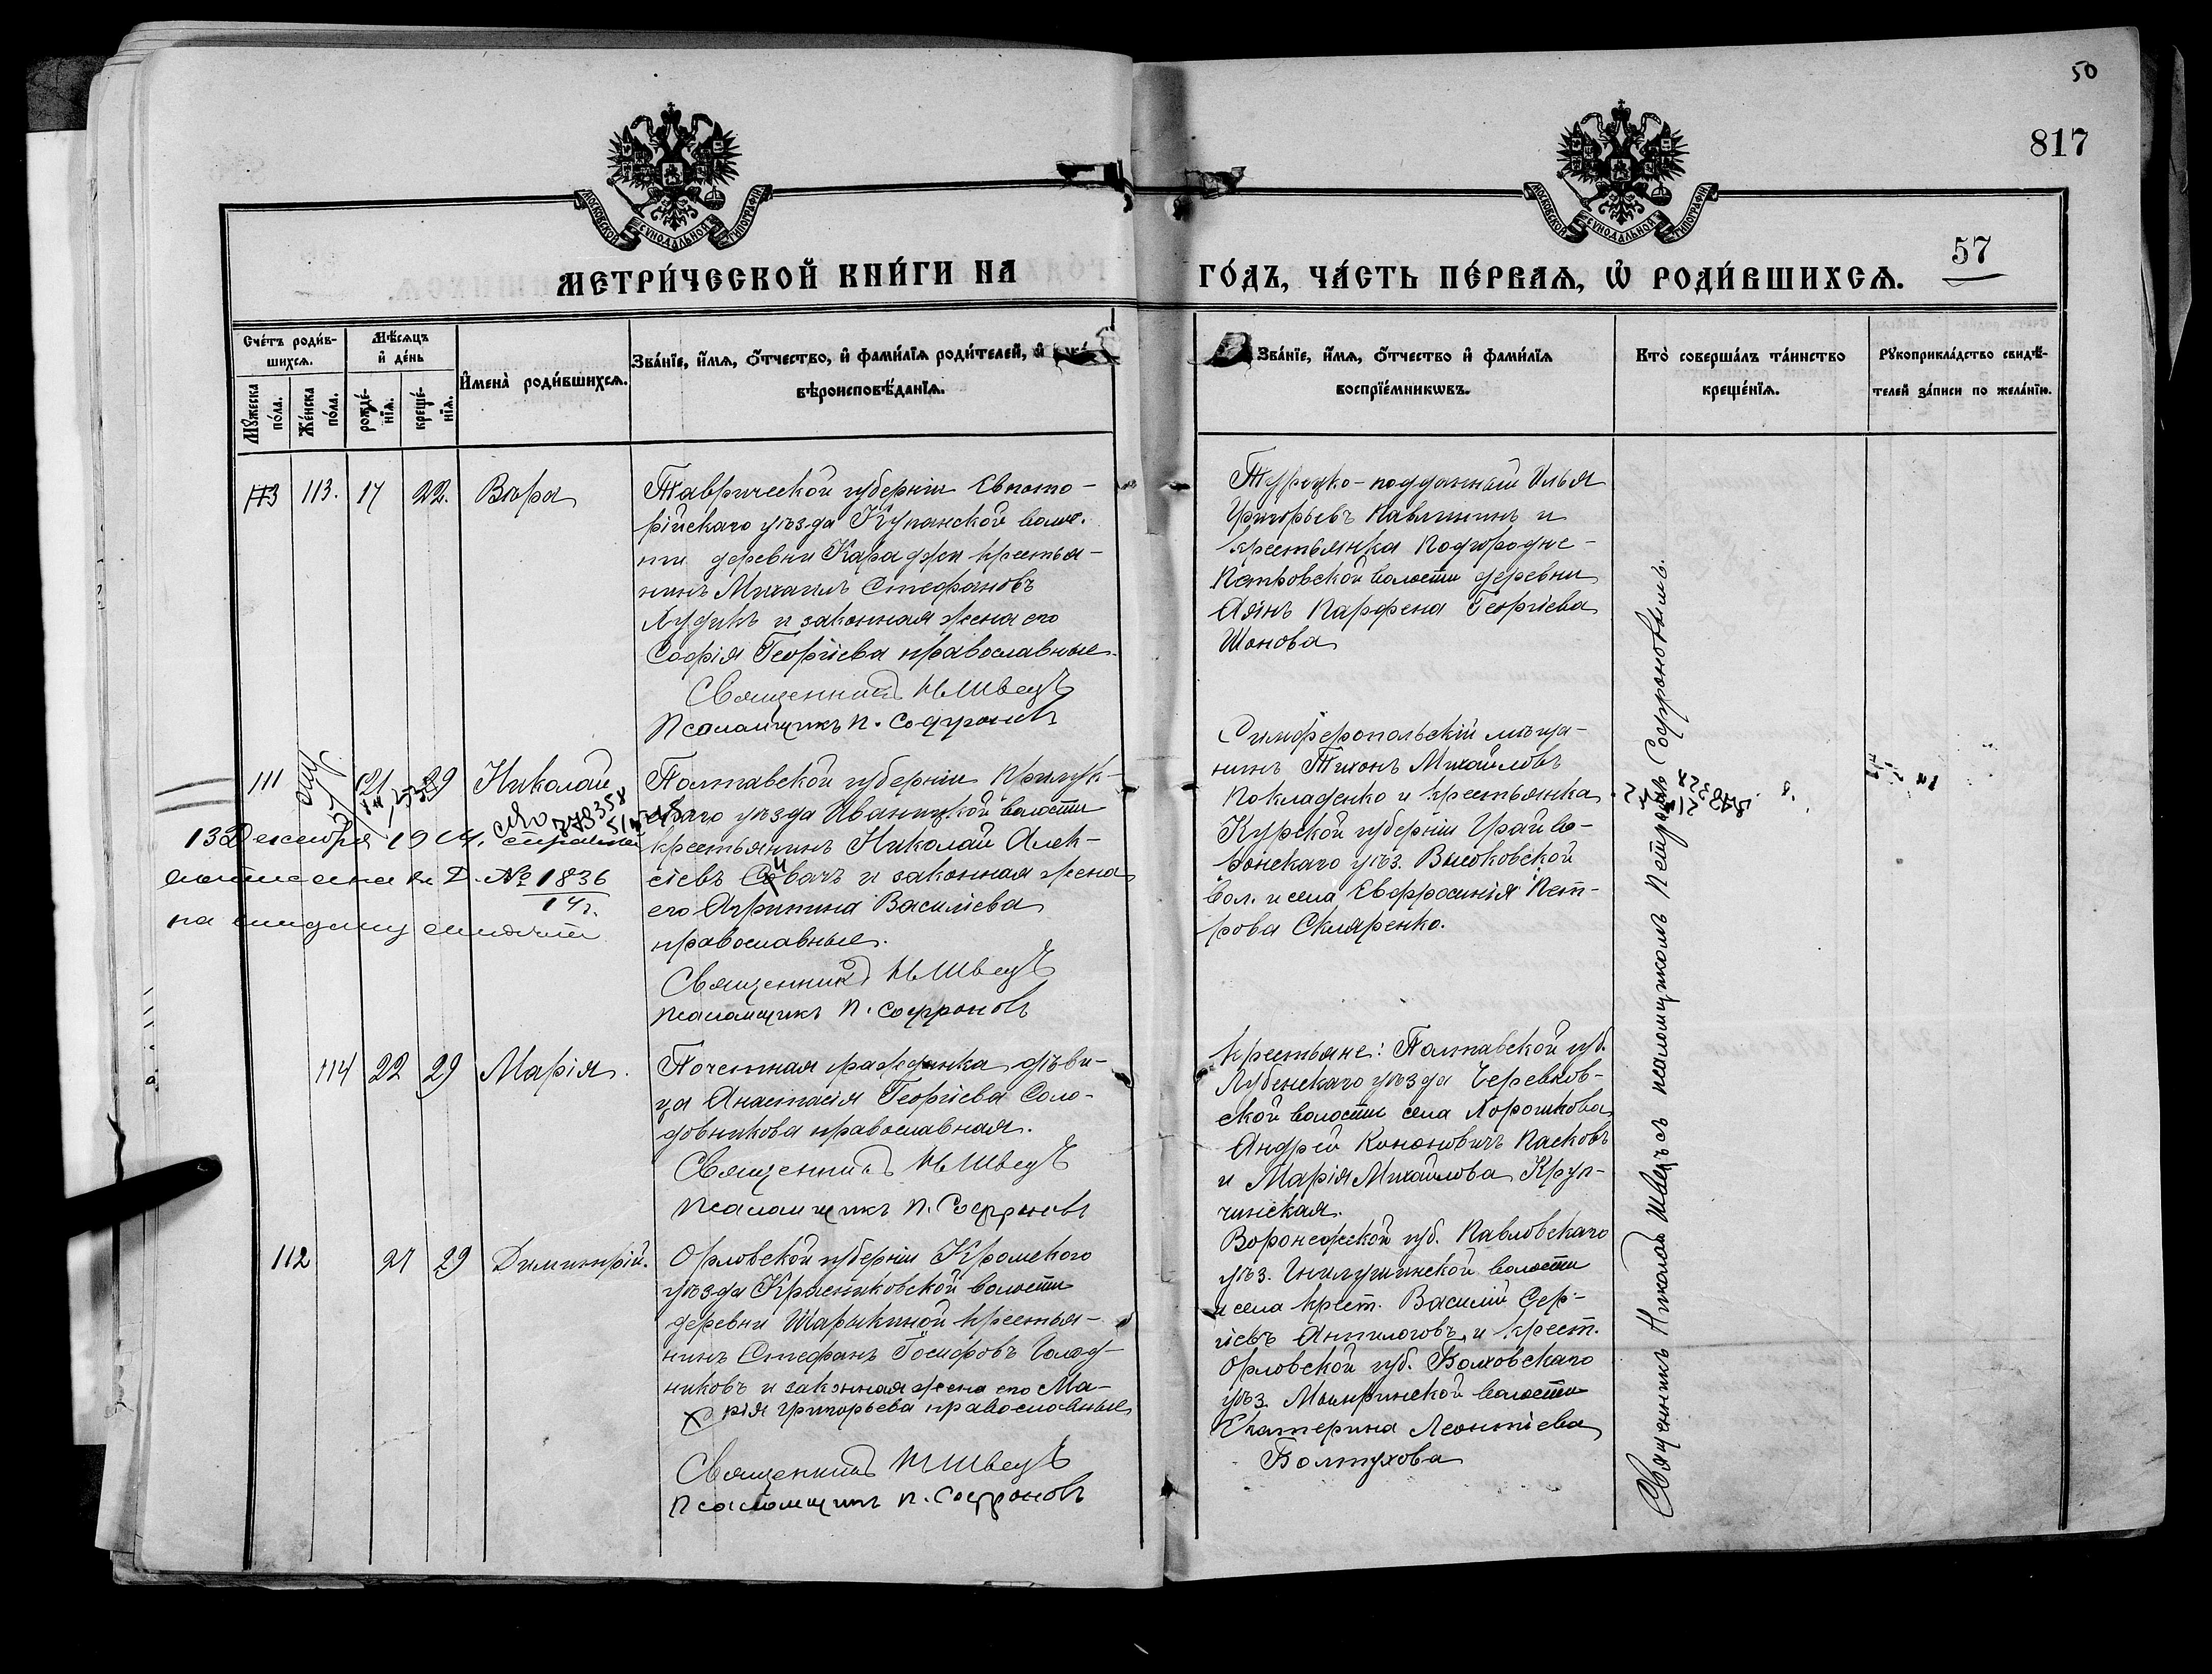 50
817
57
МОСКОВСКОЙ СѴНОДАЛЬНОЙ ТИПОГРАФІИ
МОСКОВСКОЙ СѴНОДАЛЬНОЙ ТИПОГРАФІИ
МЕТРИ́ЧЕСКОЙ КНИ́ГИ НА
ГО́ДЪ, ЧА́СТЬ ПЕ́РВАѦ, Ѡ҆ РОДИ́ВШИХСѦ.
Сче́тъ роди́в-
шихсѧ.
Мꙋ́жеска
по́ла.
Же́нска
по́ла.
Мѣ́сѧцъ
и҆ де́нь
рожде́-
нїѧ.
креще́-
нїѧ.
И҆мена̀ роди́вшихсѧ.
Зва́нїе, и҆́мѧ, ѻ҆́тчество, и҆ фами́лїѧ роди́телей, и҆
вѣроисповѣ́данїѧ.
Зва́нїе, и҆́мѧ, ѻ҆́тчество и҆ фами́лїѧ
воспрїе́мникѡвъ.
Кто̀ соверша́лъ та́инство
креще́нїѧ.
Рꙋкоприкла́дство свидѣ́-
телей за́писи по жела́нїю.
113 113. 17 22. Вѣра
Таврической губерніи Евпато-
рійскаго уѣзда Кунанской волос.
ти деревни Караджи крестья-
нинъ Михаилъ Стефановъ
и законная жена его
Софія Георгіева православные.
Священникъ Н Швецъ
Псаломщикъ П. Софроновъ
Турецко-подданный Илья
Григорьевъ Павлинъ и
крестьянка Подгородне-
Петровской волости деревни
Аянъ Парфена Георгіева
Шонова
111 21 29 Николай
13 Декабря 1914. справка
выписана за Д. № 1836
14 г.
Полтавской губерніи Прилук-
скаго уѣзда Иваницкой волости
крестьянинъ Николай Алек-
сіевъ Сивачъ и законная жена
его Агрипина Василіева
православные.
Священникъ Н Швецъ
псаломщикъ П. Софроновъ
Симферопольскій мѣща-
нинъ Тихонъ Михайловъ
Покладенко и крестьянка
Курской губерніи Грайво-
ронскаго уѣз. Высоковской
вол. и села Евфросинія Пет-
рова Скляренко.
114 22 29 Марія.
Почетная гражданка дѣви-
ца Анастасія Георгіева Соло-
довникова православная.
Священникъ Н Швецъ
Псаломщикъ П. Софроновъ
Крестьяне: Полтавской губ.
Лубенскаго уѣзда Черевков-
ской волости села Хорошкова
Андрей Кононовичъ Пасковъ
и Марія Михайлова Круп-
чинская.
112 21 29 Димитрій.
Орловской губерніи Кромскаго
уѣзда Красниковской волости
деревни Шарыкиной крестья-
нинъ Стефанъ Іосифовъ Голод-
никовъ и законная жена его Ма-
рія Григорьева православные
Священникъ Н Швецъ
Псаломщикъ П. Софроновъ
Воронежской губ. Павловскаго
уѣз. Гнилушинской волости
и села крест. Василій Сер-
гіевъ Антилоговъ и крест.
Орловской губ. Болховскаго
уѣз. Мымринской волости
Екатерина Леонтіева
Болтухова
Священникъ Николай Швецъ съ псаломщикомъ Петромъ Софроновымъ.